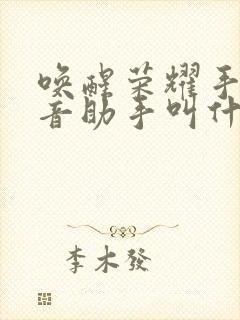 唤醒荣耀手
音助手叫什
李木發